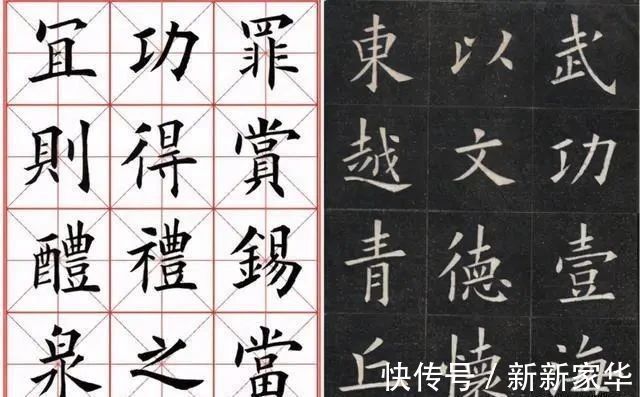 罪賞錫當
功得禮之
冝則醴泉
武功壹海
以文德懷
東越青丘
快传号 / 新新家华